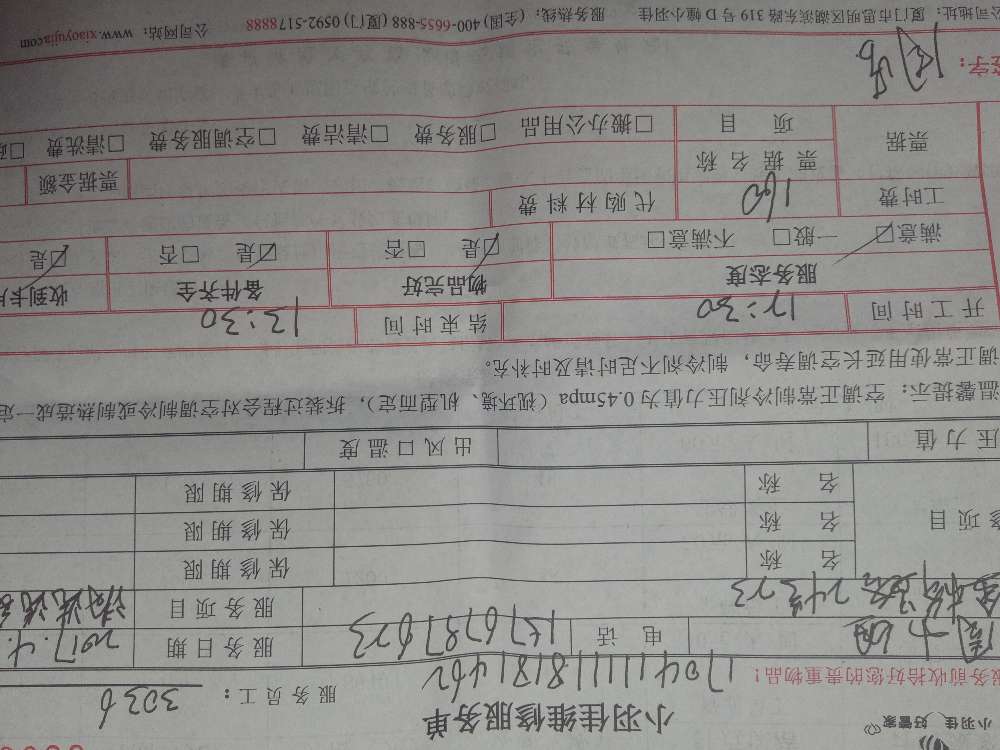 小羽佳 好管家
小羽佳维修服务单
服务员工: 3036
1704111118181462
务前收拾好您的贵重物品!
周小姐 电话 15767976873 服务日期 2017.4.
服务项目
名称 保修期限
修项目 名称 保修期限
名称 保修期限
压力值 出风口温度
温馨提示: 空调正常制冷剂压力值为0.45mpa (视环境、机型而定), 拆装过程会对空调制冷或制热造成一定
调正常使用延长空调寿命, 制冷剂不足时请及时补充。
开工时间 12:30 结束时间 13:30
服务态度 物品完好 备件齐全 收到卡片
满意□ 一般□ 不满意□ □是 □否 □是 □否 □是
工时费 160 代购材料费
票据 票据名称 票据金额
项目 □搬办公用品 □服务费 □清洁费 □空调服务费 □清洗费
签字:
公司地址: 厦门市思明区湖滨东路319号D幢小羽佳 服务热线: (全国) 400-6655-888 (厦门) 0592-5178888 公司网站: www.xiaoyujia.com